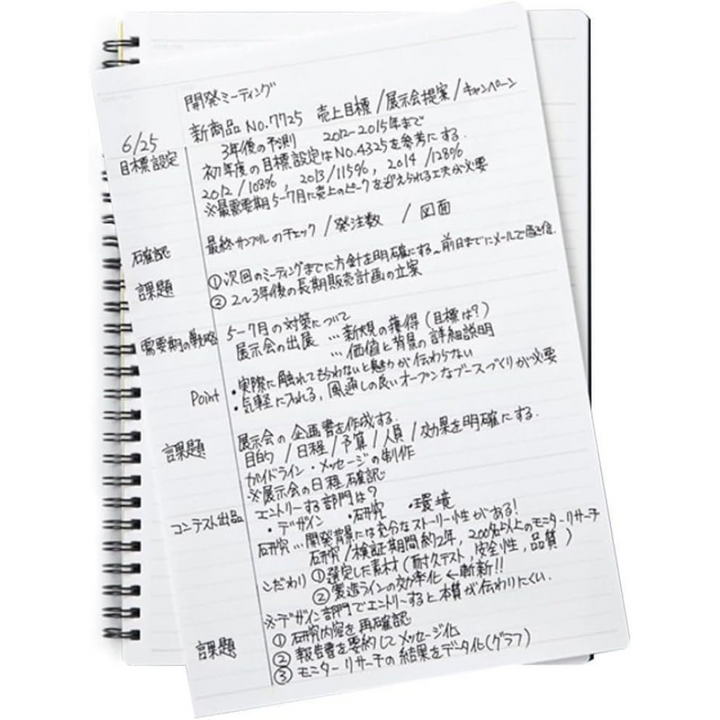 開発ミーティング
6/25 新商品 No.7725 売上目標/展示会提案/キャンペーン
目標設定 3年後の予測 2012-2015年まで
初年度の目標設定はNo.4325を参考にする.
2012/108%, 2013/115%, 2014/128%
※最需要期5-7月に売上のピークを迎えられる工夫が必要
確認 最終サンプルのチェック/発注数 / 図面
課題 ①次回のミーティングまでに方針を明確にする~前日までにメールで
②2~3年後の長期販売計画の立案
需要期の戦略 5-7月の対策について
展示会の出展 …新規の獲得(目標は?)
…価値と背景の詳細説明
Point ・実際に触れてもらわないと魅力が伝わらない
・気軽に入れる,風通しの良いオープンなブースづくりが必要
課題 展示会の企画書を作成する.
目的/日程/予算/人員/効果を明確にする.
ガイドライン・メッセージの制作
※展示会の日程確認
コンテスト出品 エントリーする部門は?
・デザイン ・研究 ・環境
研究…開発背景には充分なストーリー性がある!
研究/検証期間約2年,200名以上のモニターリサーチ
こだわり ①選定した素材(耐久テスト,安全性,品質)
②製造ラインの効率化←斬新!!
※デザイン部門でエントリーすると本質が伝わりにくい.
課題 ①研究内容を再確認
②報告書を要約してメッセージ化
③モニターリサーチの結果をデータ化(グラフ)